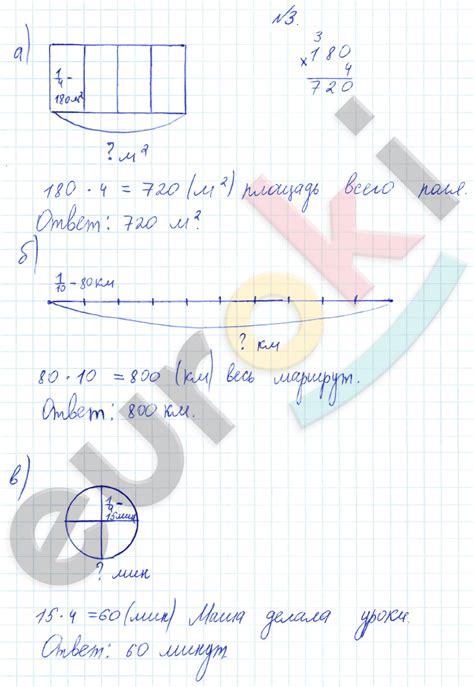 №3.
а)
3
×180
4
720
1/4 -
180 м²
? м²
180 · 4 = 720 (м²) площадь всего поля.
Ответ: 720 м².
б)
1/10 - 80 км
? км
80 · 10 = 800 (км) весь маршрут.
Ответ: 800 км.
в)
1/4 -
15 мин
? мин
15 · 4 = 60 (мин) Маша делала уроки.
Ответ: 60 минут
euroki